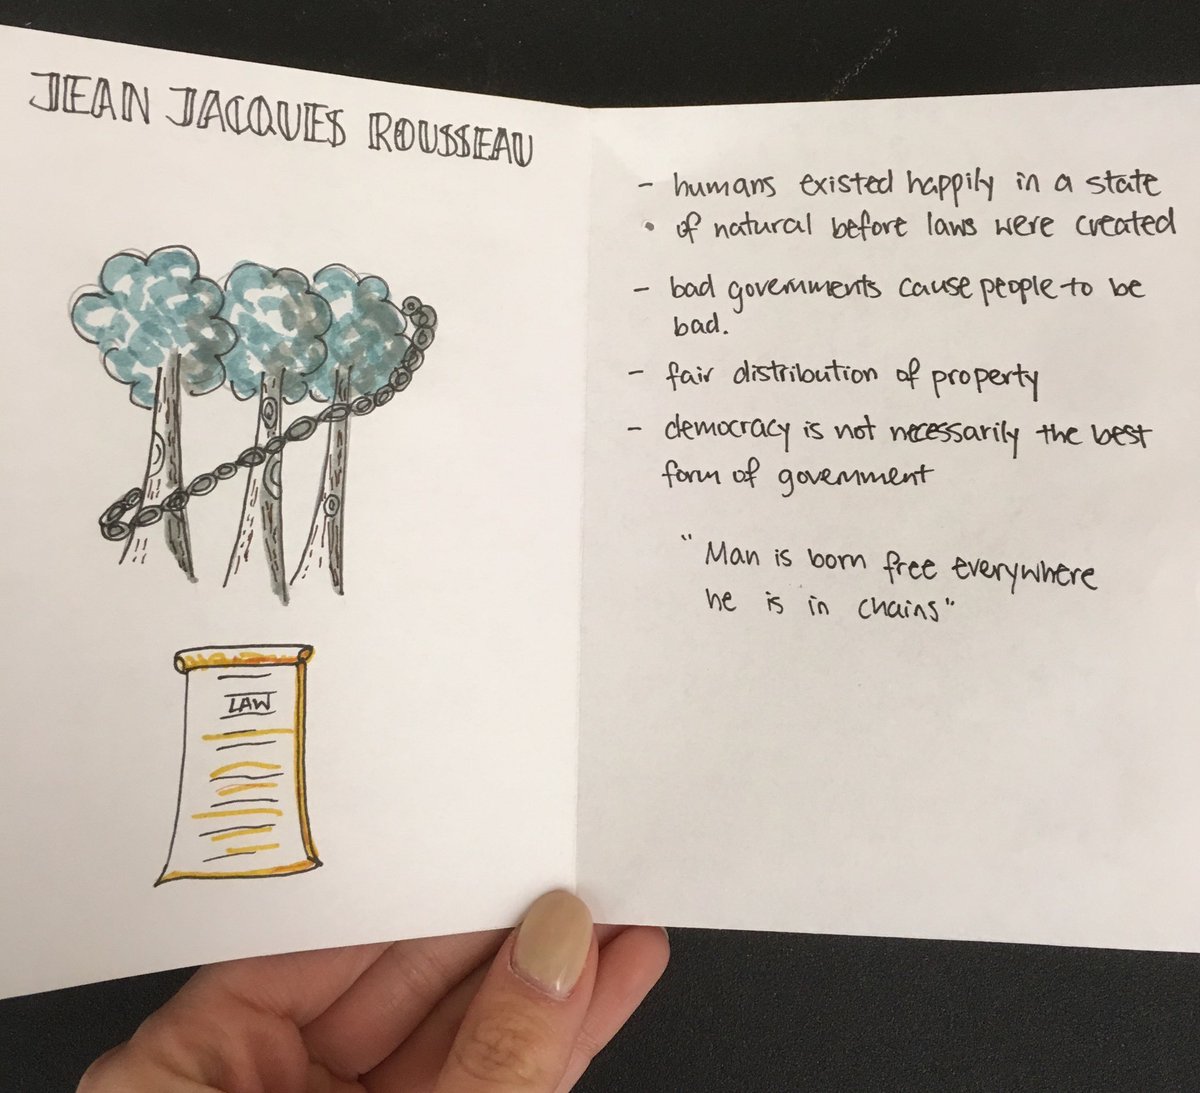 JEAN JACQUES ROUSSEAU
LAW
- humans existed happily in a state
• of natural before laws were created
- bad governments cause people to be
bad.
- fair distribution of property
- democracy is not necessarily the best
form of government
"Man is born free everywhere
he is in chains"